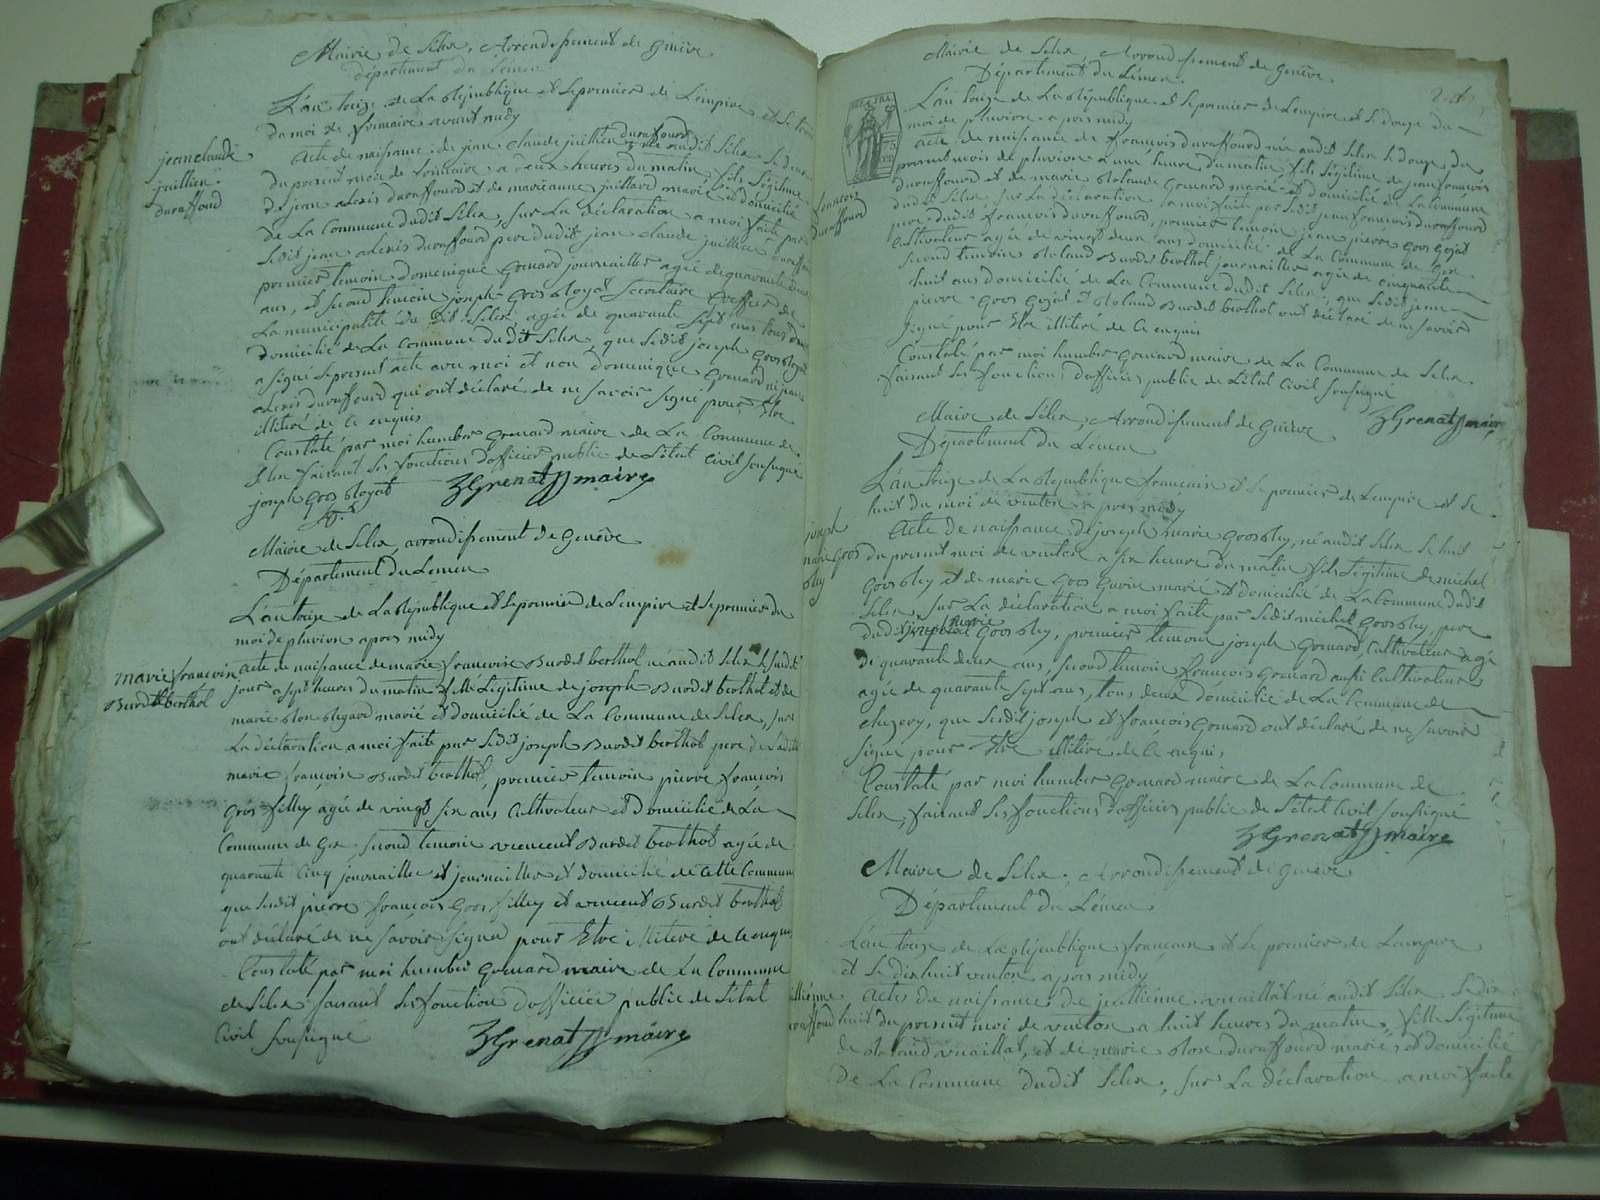 Mairie de Lelex, Arrondissement de Genève
département du Léman
L'an treize de La République et Le premier de L'empire et le
du moi de frimaire avant midy
jean claude
juillien
duraffourd
Acte de naissance de jean claude juillien duraffourd né audit Lelex Le deux
du present moi de frimaire a deux heures du matin, fils Légitime
de jean alexis duraffourd et de marieanne juillard marié et domicilié
de La Commune dudit Lelex, sur La déclaration a moi faite par
Ledit jean alexis duraffourd pere dudit jean claude juillien duraffourd
premier temoin domenique Grenard journaillier agée de quarante
ans, et second temoin joseph Gros Royat secretaire Greffier de
La municipalité du dit Lelex agée de quarante sept ans tous deux
domicilié de La Commune dudit Lelex, que Ledit joseph Gros Royat
a signé Le present acte avec moi et non domenique Grenard ni jean
alexis duraffourd qui ont déclaré de ne savoir signé pour Etre
illitéré de Ce enquis
Constaté par moi humbert Grenard maire de La Commune de
Lelex faisant Les fonctions d'officier public de L'état Civil soussigné
joseph Gros Royat
h Grenard maire
Mairie de Lelex, arrondissement de Genève
Département du Leman
L'an treize de La République et Le premier de L'empire et Le premier du
moi de pluviose apres midy
marie françoise
Burdet berthod
acte de naissance de marie françoise Burdet berthod né audit Lelex Le susdit
jour a sept heures du matin fille Légitime de joseph Burdet berthod et de
marie Rose Regard marié et domicilié de La Commune de Lelex, sur
La déclaration a moi faite par Ledit joseph Burdet berthod pere de Ladite
marie françoise Burdet berthod, premier temoin pierre françois
Gros fillex agée de vingt six ans Cultivateur et domicilié de La
Commune de Gex second temoin vincent Burdet berthod agée de
quarante Cinq journaillier et journaillier et domicilié de Cette Commune
que Lesdit pierre françois Gros fillex et vincent Burdet berthod
ont déclaré de ne savoir signer pour Etre illiteré de Ce enquis
Constaté par moi humbert Grenard maire de La Commune
de Lelex faisant Les fonction d'officier public de L'état
Civil soussigné
h Grenard maire
Mairie de Lelex, Arrondissement de Genève,
Département du Léman
REP. FRA.
L'an treize de La République et Le premier de L'empire et Le douze du
moi de pluviose apres midy
françois
duraffourd
acte de naissance de françois duraffourd né audit Lelex Le douze du
present mois de pluviose a une heure du matin, fils Légitime de jean françois
duraffourd et de marie Rolande Grenard marié et domicilié de La Commune
dudit Lelex, sur La déclaration a moi faite par Ledit jean françois duraffourd
pere dudit françois duraffourd, premier temoin jean pierre Gros Gojat
Cultivateur agée de vingt deux ans domicilié de La Commune de Gex
second temoin Roland Burdet berthod journaillier agée de cinquante
huit ans domicilié de La Commune dudit Lelex, que Lesdit jean
pierre Gros Gojat et Roland Burdet berthod ont déclaré de ne savoir
signé pour Etre illiteré de Ce enquis
Constaté par moi humbert Grenard maire de La Commune de Lelex
faisant Les fonctions d'officier public de L'état Civil soussigné
h Grenard maire
Maire de Lelex, Arrondissement de Genève
Département du Léman
L'an treize de La République français et Le premier de L'empire et Le
huit du moi de ventose apres midy
joseph
marie Gros
Acte de naissance de joseph marie Gros né audit Lelex Le huit
du present moi de ventose a six heure du matin fils Légitime de michel
Gros et de marie Gros marié et domicilié de La Commune dudit
Lelex, sur La déclaration a moi faite par Ledit michel Gros pere
dudit joseph marie Gros, premier temoin joseph Grenard Cultivateur agé
de quarante deux ans, second temoin françois Grenard aussi Cultivateur
agée de quarante sept ans, tous deux domicilié de La Commune de
chezery, que Lesdit joseph et françois Grenard ont déclaré de ne savoir
signé pour Etre illiteré de Ce enquis
Constaté par moi humbert Grenard maire de La Commune de
Lelex, faisant Les fonctions d'officier public de L'état Civil soussigné
h Grenard maire
Mairie de Lelex, Arrondissement de Genève
Département du Léman
L'an treize de La République français et Le premier de L'empire
et Le dixhuit ventose apres midy
Acte de naissance de juillienne né audit Lelex Le dix
huit du present moi de ventose a huit heures du matin, fille Légitime
de Roland et de marie Rose duraffourd marié et domicilié
de La Commune dudit Lelex, sur La déclaration a moi faite